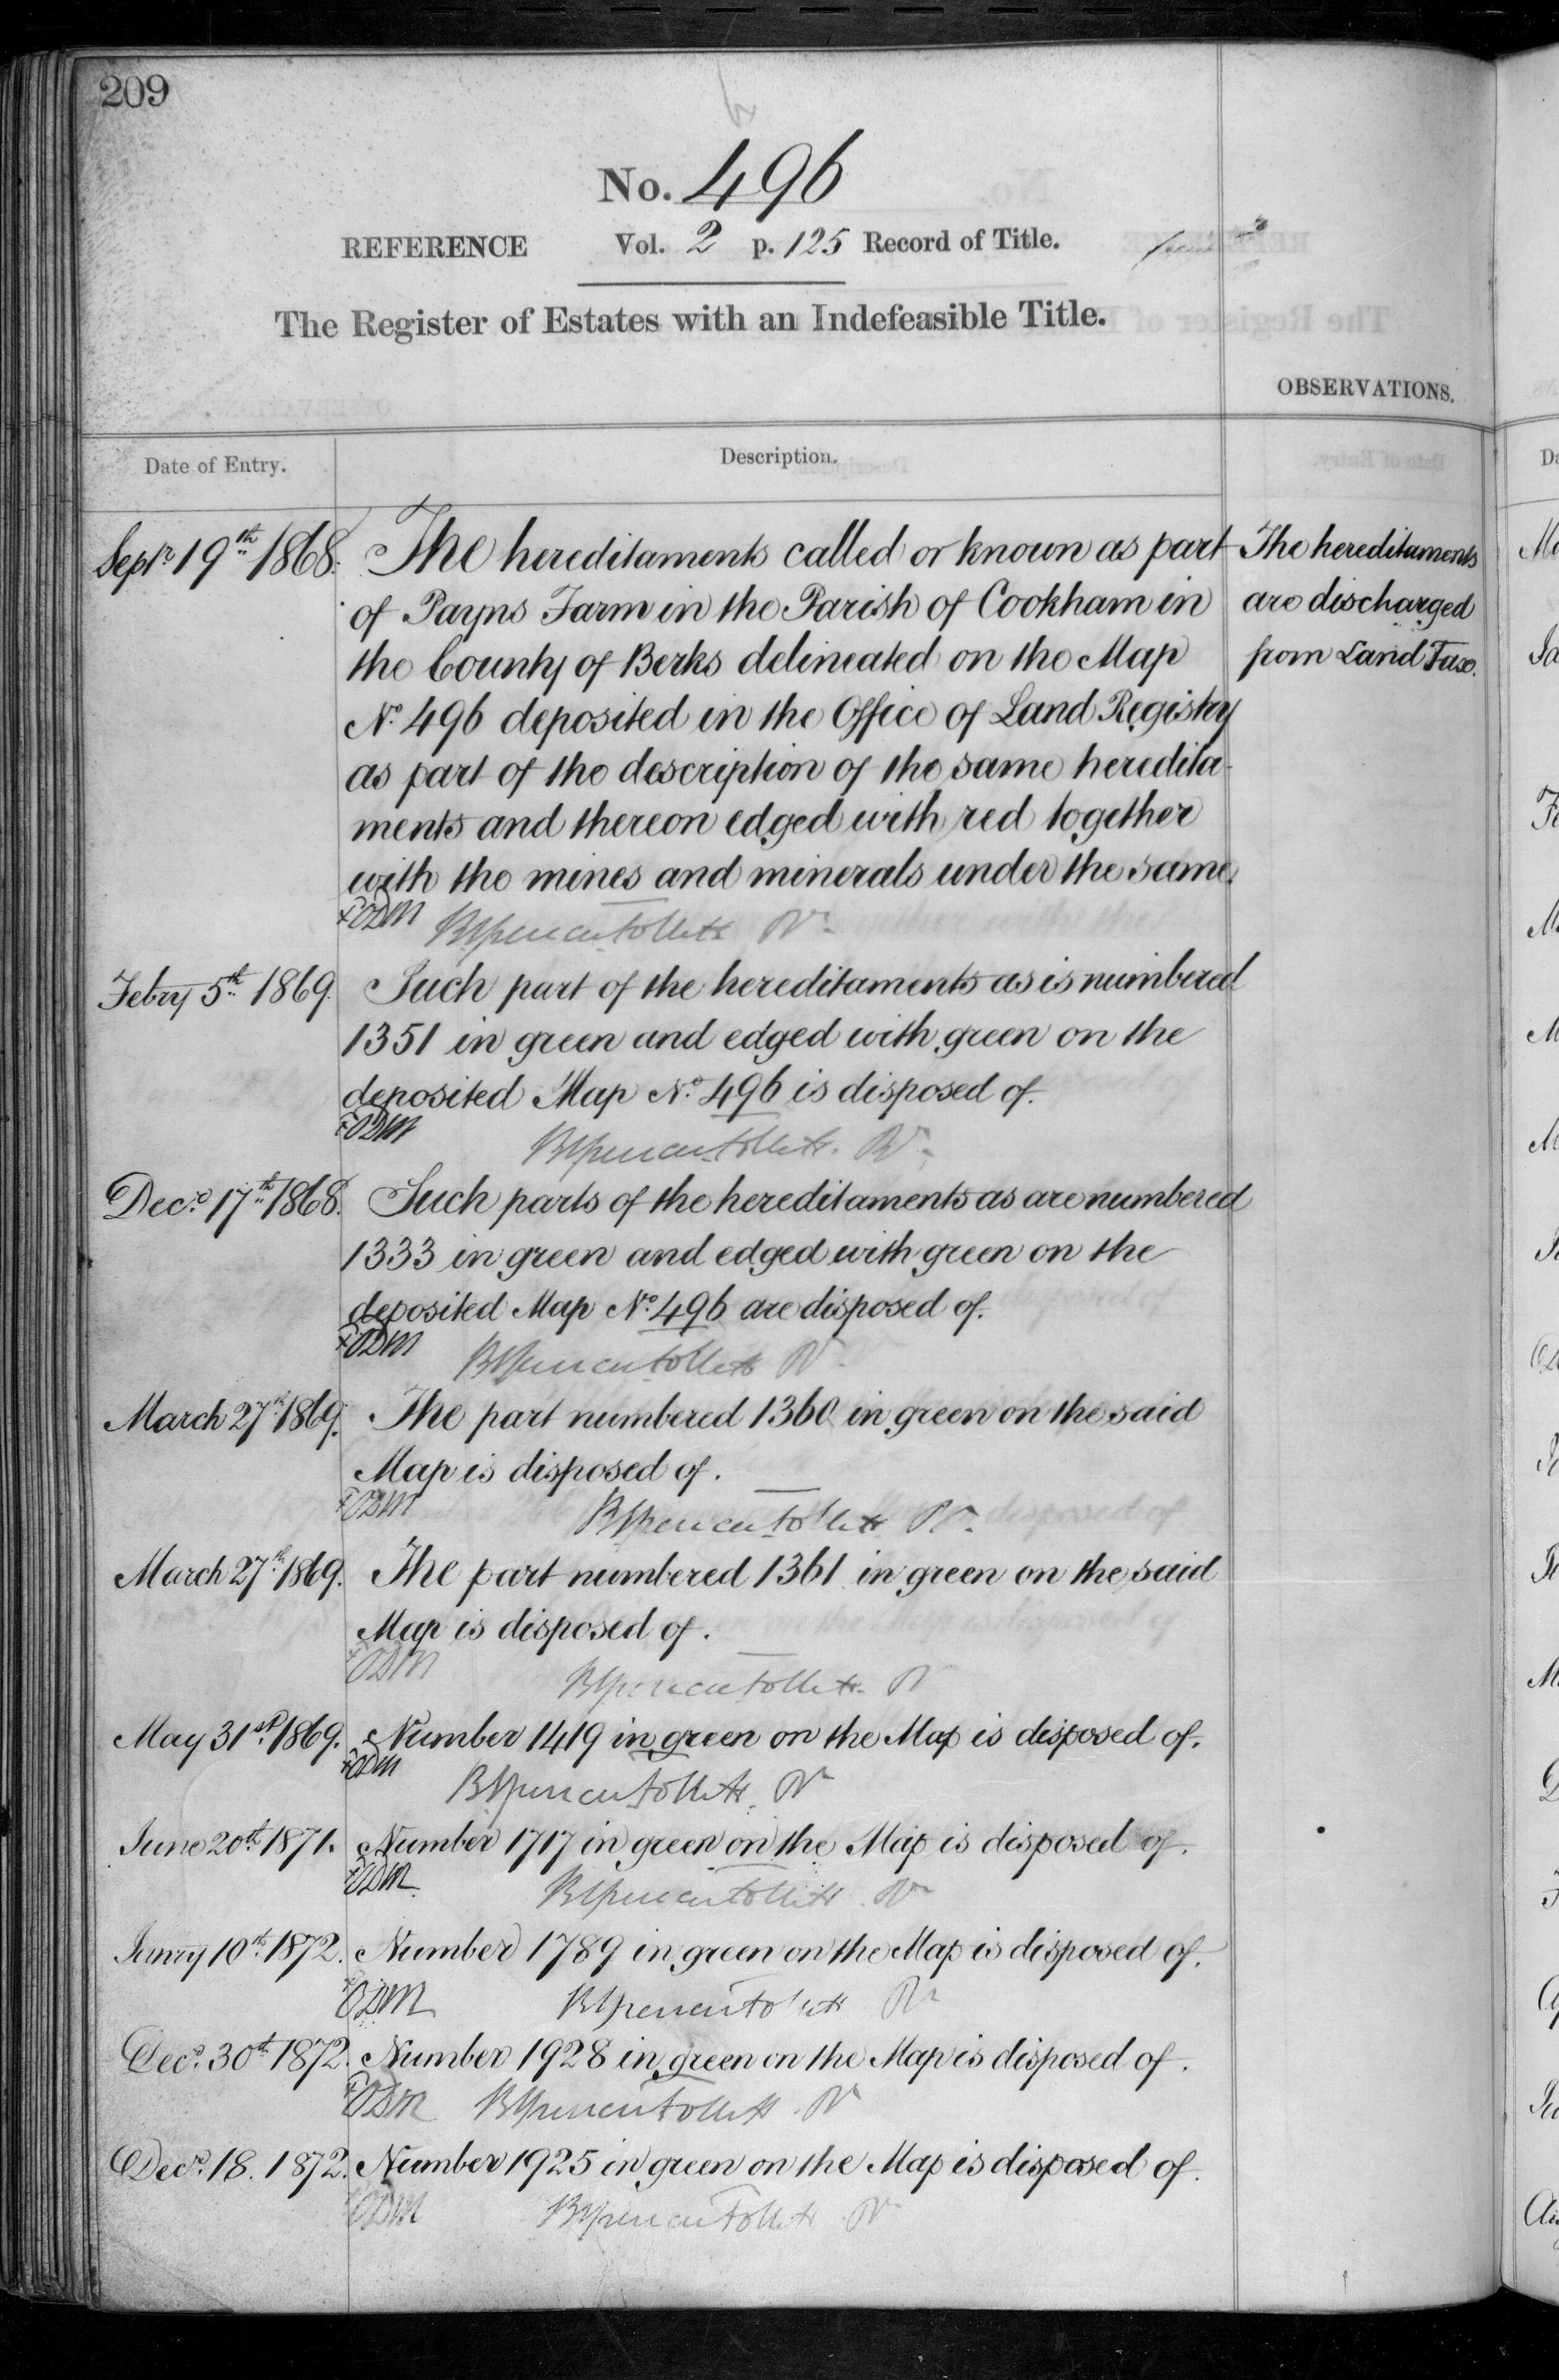 209
No. 496
REFERENCE Vol. 2 p. 125 Record of Title.
The Register of Estates with an Indefeasible Title.
OBSERVATIONS.
Date of Entry. Description.
Septr 19th 1868. The hereditaments called or known as part The hereditaments
of Payns Farm in the Parish of Cookham in are discharged
the County of Berks delineated on the Map from Land Tax.
No. 496 deposited in the Office of Land Registry
as part of the description of the same heredita-
ments and thereon edged with red together
with the mines and minerals under the same.
Febry 5th 1869. Such part of the hereditaments as is numbered
1351 in green and edged with green on the
deposited Map No. 496 is disposed of.
Decr. 17th 1868. Such parts of the hereditaments as are numbered
1333 in green and edged with green on the
deposited Map No. 496 are disposed of.
March 27th 1869. The part numbered 1360 in green on the said
Map is disposed of.
March 27th 1869. The part numbered 1361 in green on the said
Map is disposed of.
May 31st 1869. Number 1419 in green on the Map is disposed of.
June 20th 1871. Number 1717 in green on the Map is disposed of.
Janry 10th 1872. Number 1789 in green on the Map is disposed of.
Decr. 30th 1872. Number 1928 in green on the Map is disposed of.
Decr. 18. 1872. Number 1925 in green on the Map is disposed of.